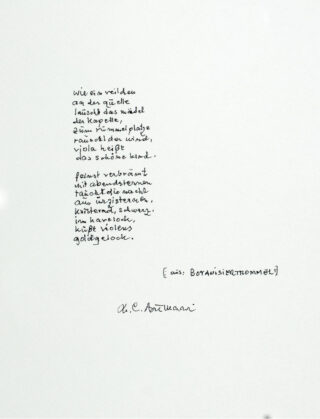 wie ein veilchen
an der quelle
lauscht das mädel
der kapelle,
zum rummelplatze
rauscht der wind,
viola heißt
das schöne kind.
verbrämt
mit abendsternen
taucht die nacht
aus
knisternd, schwarz.
im havelock,
küßt violens
goldgelock.
(aus: BOTANISIERTROMMEL)
H. C. Artmann